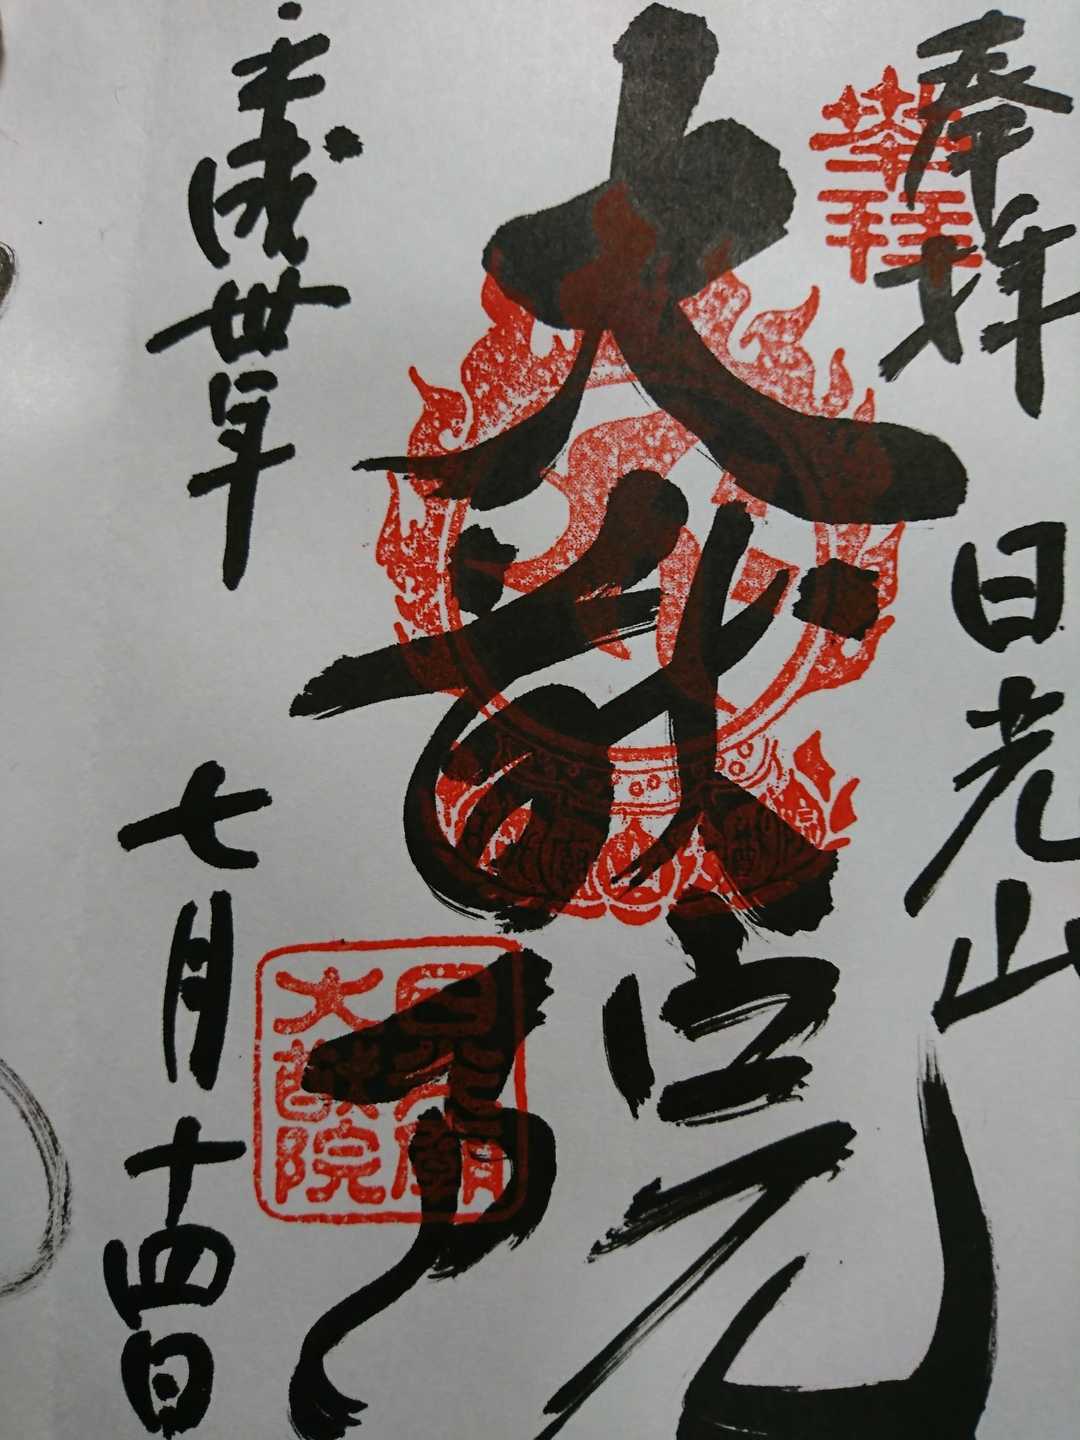 奉拝
奉拝
日光山
大猷院
日光廟
大猷院
平成卅年
七月十四日